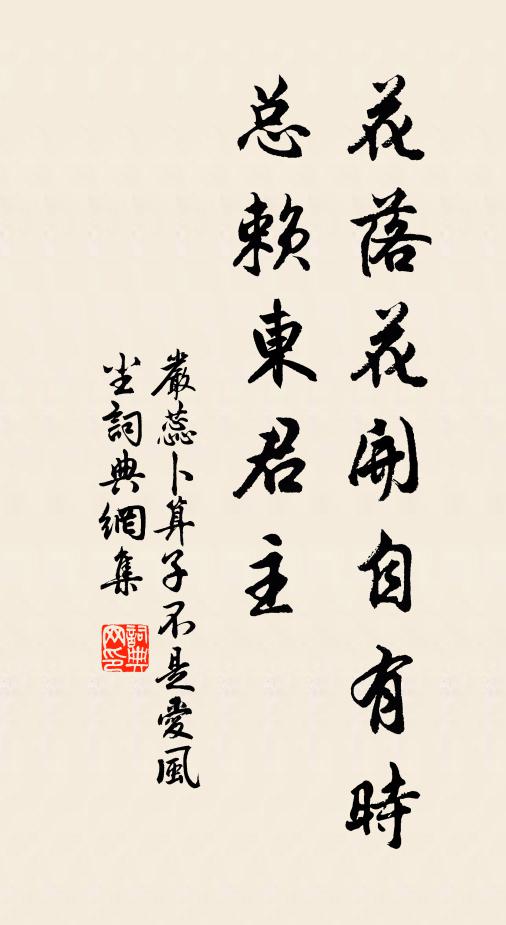 花落花開自有時
总赖東君主
嚴蕊卜算子不是愛風
尘詞典網集
詞典网印